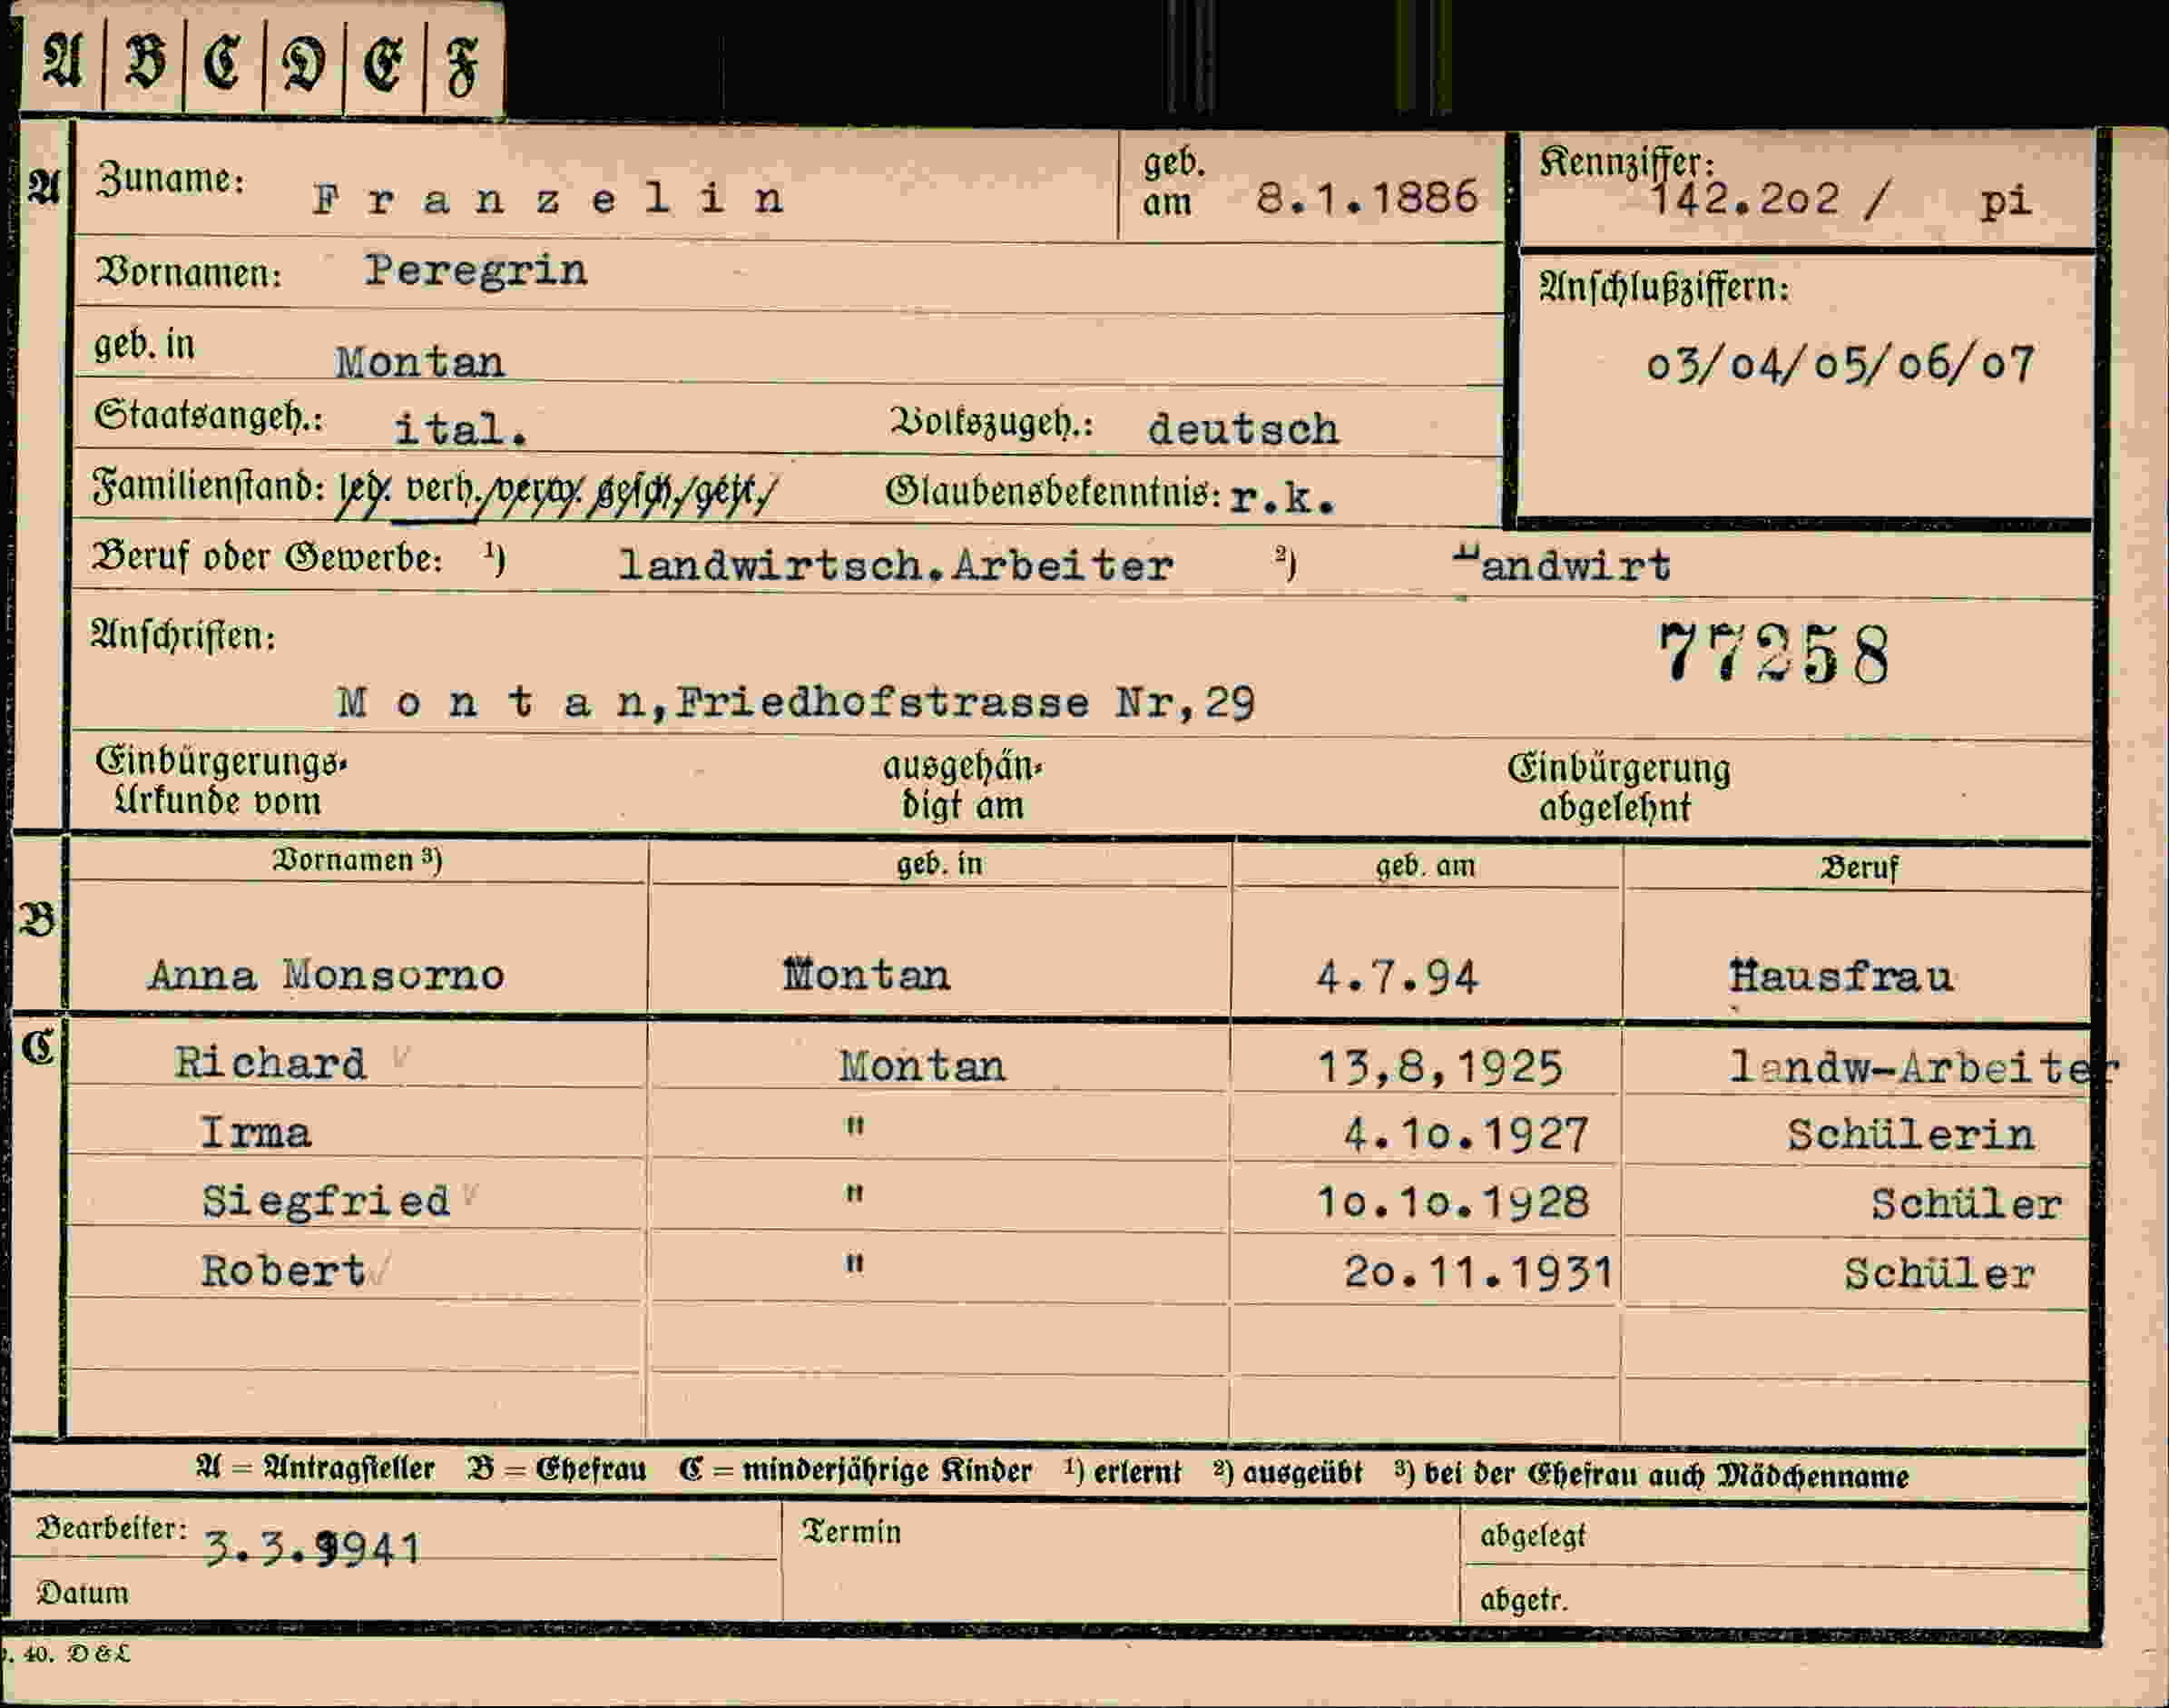 A B C D E F
A Zuname: Franzelin geb. am 8.1.1886 Kennziffer: 142.2o2 / pi
Vornamen: Peregrin Anschlußziffern:
geb. in Montan o3/o4/o5/o6/o7
Staatsangeh.: ital. Volkszugeh.: deutsch
Familienstand: led. verh./verw. gesch./getr./ Glaubensbekenntnis: r.k.
Beruf oder Gewerbe: ¹) landwirtsch.Arbeiter ²) Landwirt
Anschriften: 77258
Montan,Friedhofstrasse Nr,29
Einbürgerungs- ausgehän- Einbürgerung
Urkunde vom digt am abgelehnt
Vornamen ³) geb. in geb. am Beruf
B
Anna Monsorno Montan 4.7.94 Hausfrau
C Richard Montan 13,8,1925 landw-Arbeiter
Irma " 4.1o.1927 Schülerin
Siegfried " 1o.1o.1928 Schüler
Robert " 2o.11.1931 Schüler
A = Antragsteller B = Ehefrau C = minderjährige Kinder ¹) erlernt ²) ausgeübt ³) bei der Ehefrau auch Mädchenname
Bearbeiter: 3.3.1941 Termin abgelegt
Datum abgetr.
. 40. D & L